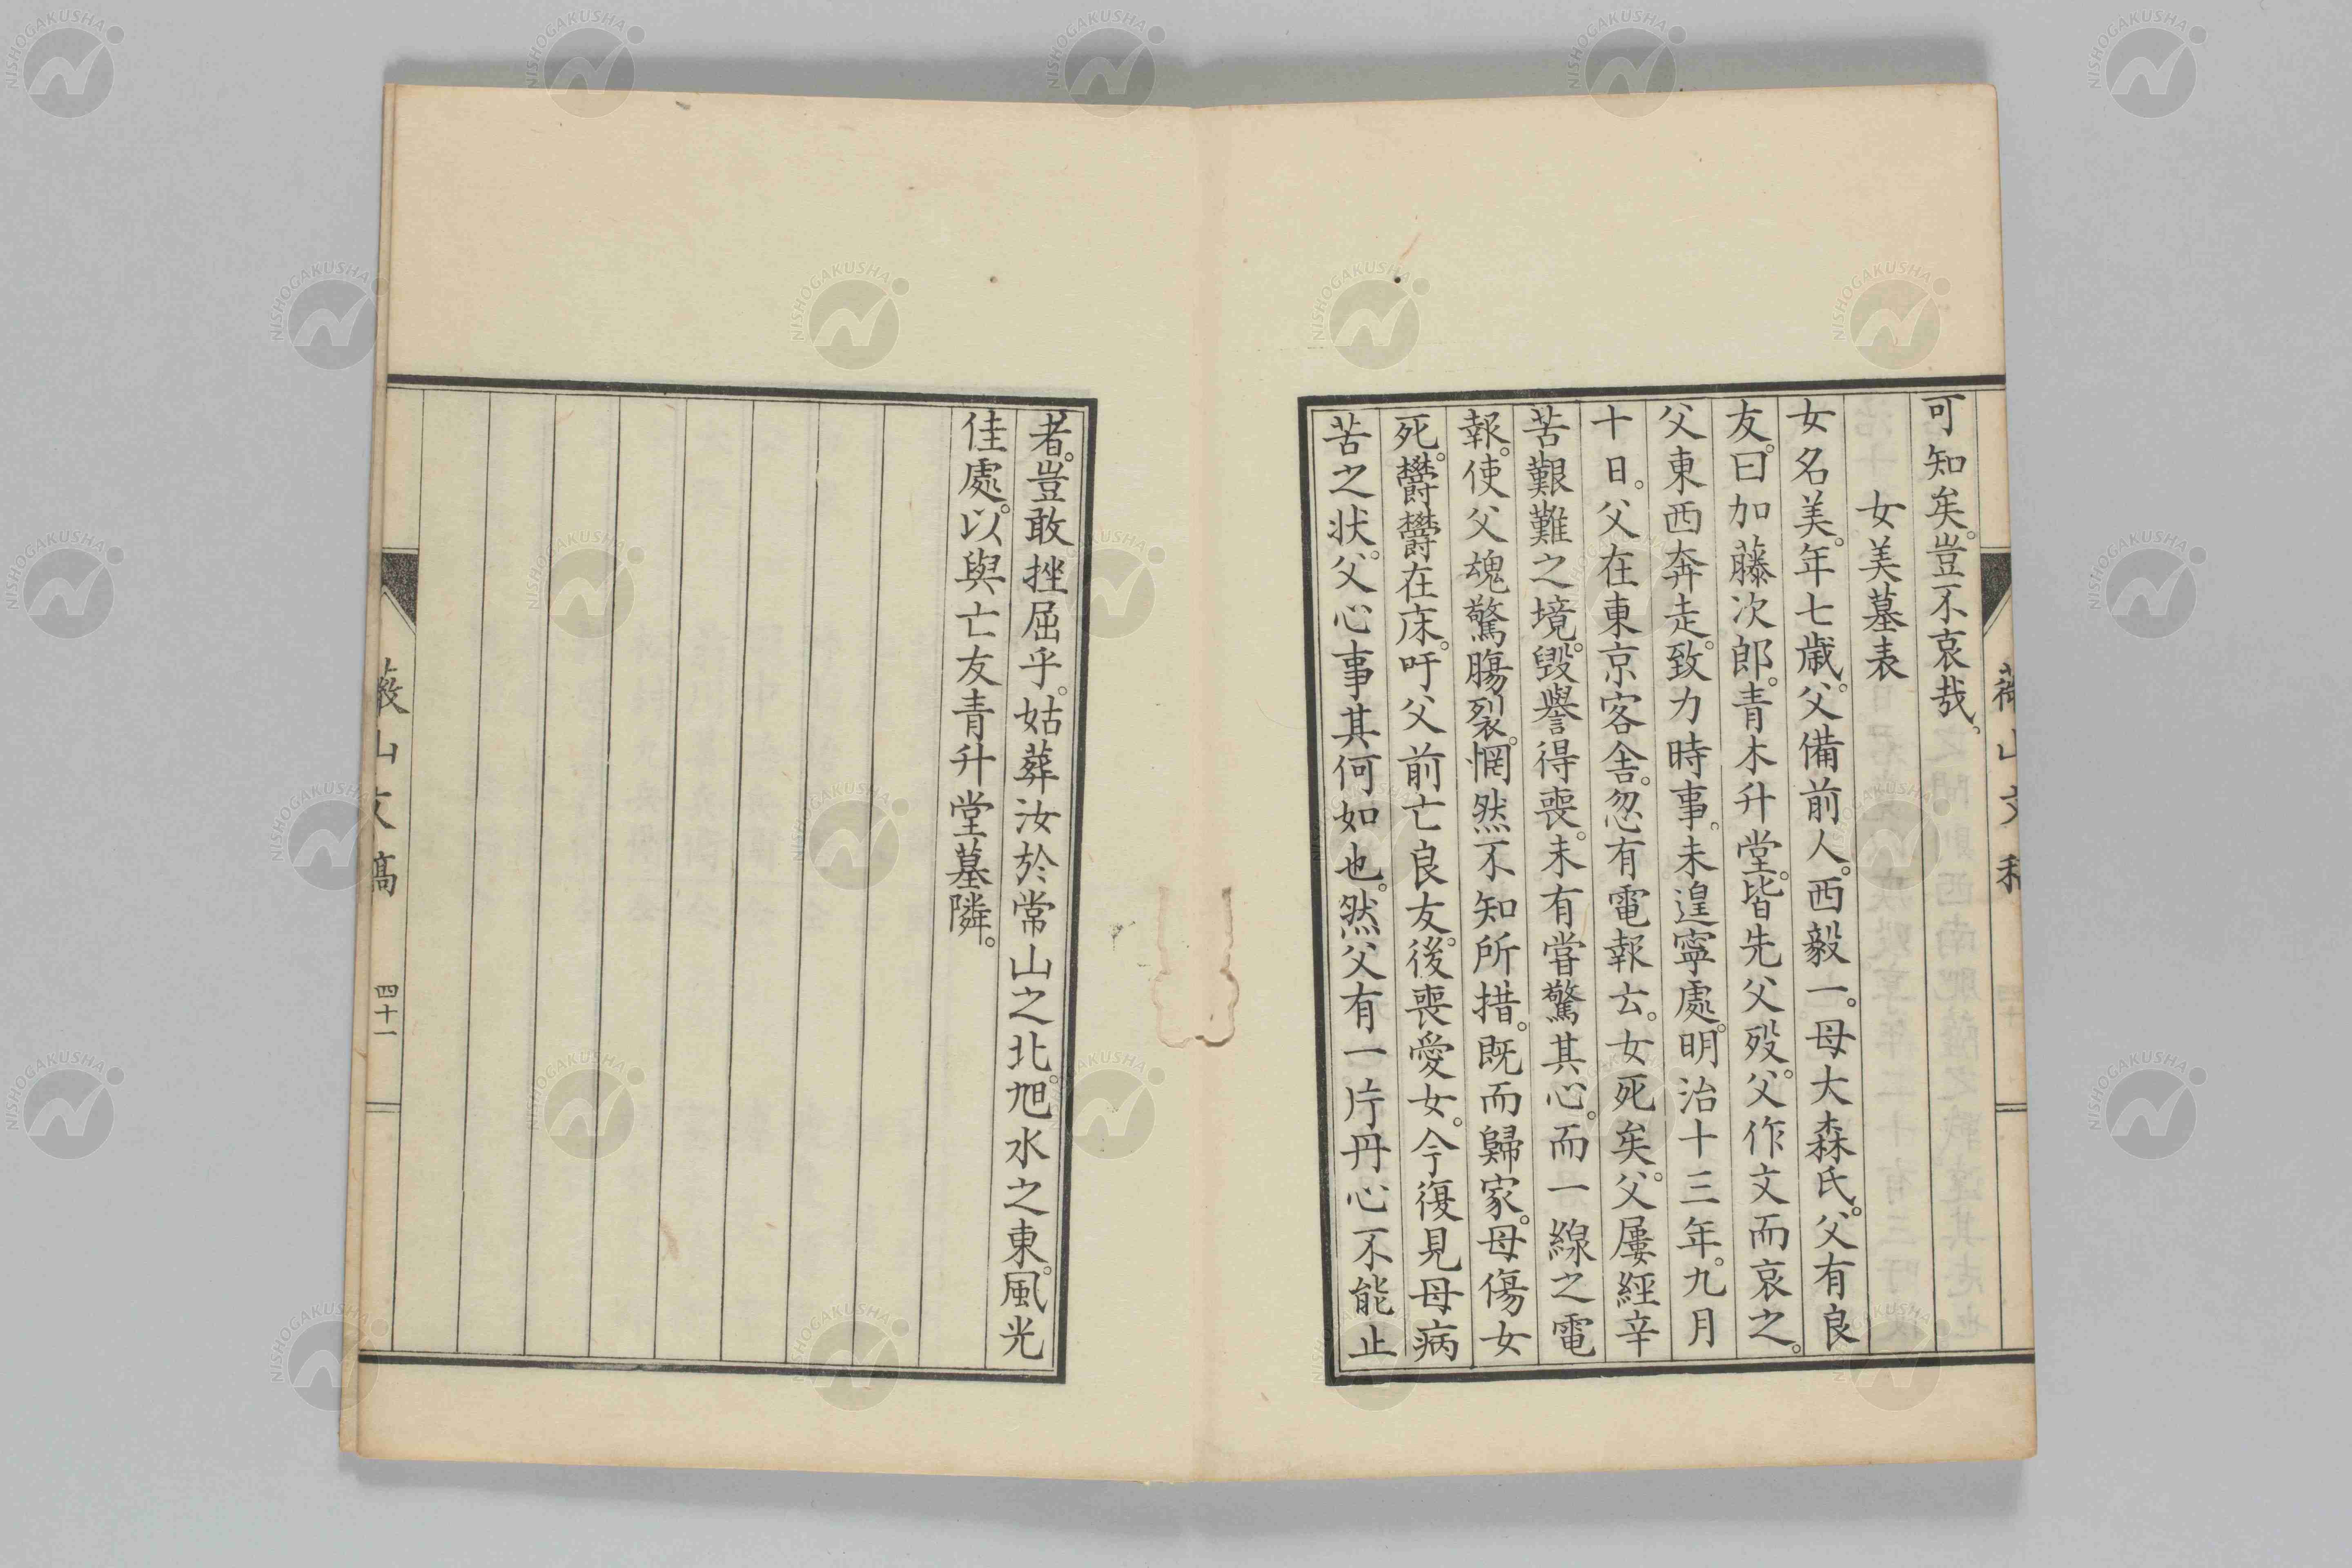 可知矣。豈不哀哉。
女美墓表
女名美。年七歲。父備前人。西毅一。母大森氏。父有良
友。曰加藤次郎。青木升堂。皆先父歿。父作文而哀之。
父東西奔走。致力時事。未遑寧處。明治十三年。九月
十日。父在東京客舎。忽有電報云。女死矣。父屢經辛
苦艱難之境。毀譽得喪。未有嘗驚其心。而一線之電
報。使父魂驚膓裂。惘然不知所措。既而歸家。母傷女
死。欝欝在床。吁父前亡良友。後喪愛女。今復見母病
苦之状。父心事其何如也。然父有一片丹心不能止
者。豈敢挫屈乎。姑葬汝於常山之北。旭水之東。風光
佳處。以與亡友青升堂墓隣。
薇山文稿
四十一
NISHOGAKUSHA